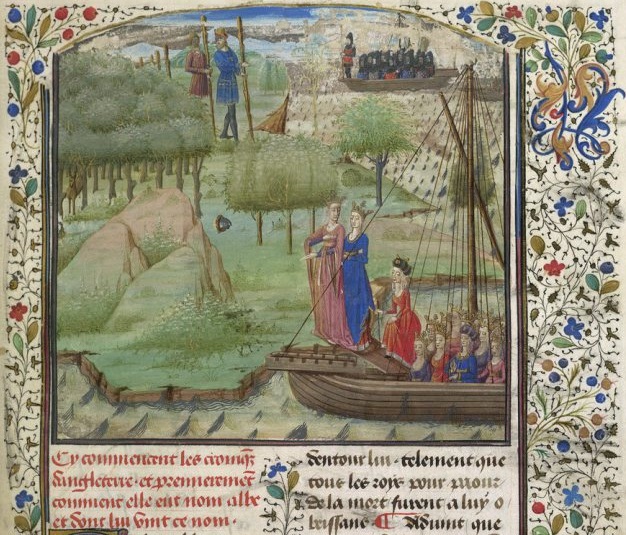 Cy commencent les croniq̄s
dangleterre · et premierement
comment elle eut nom albe
et dont lui vint ce nom ·
dentour lui · telement que
tous les rois pour paour
de la mort furent a luy o
beissans ¶ Aduint que